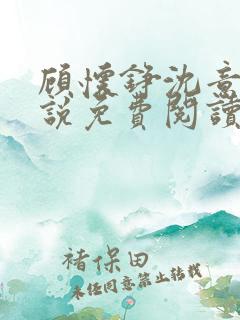 顾怀铮沈意
说免费阅读
褚保田
未经同意禁止转载